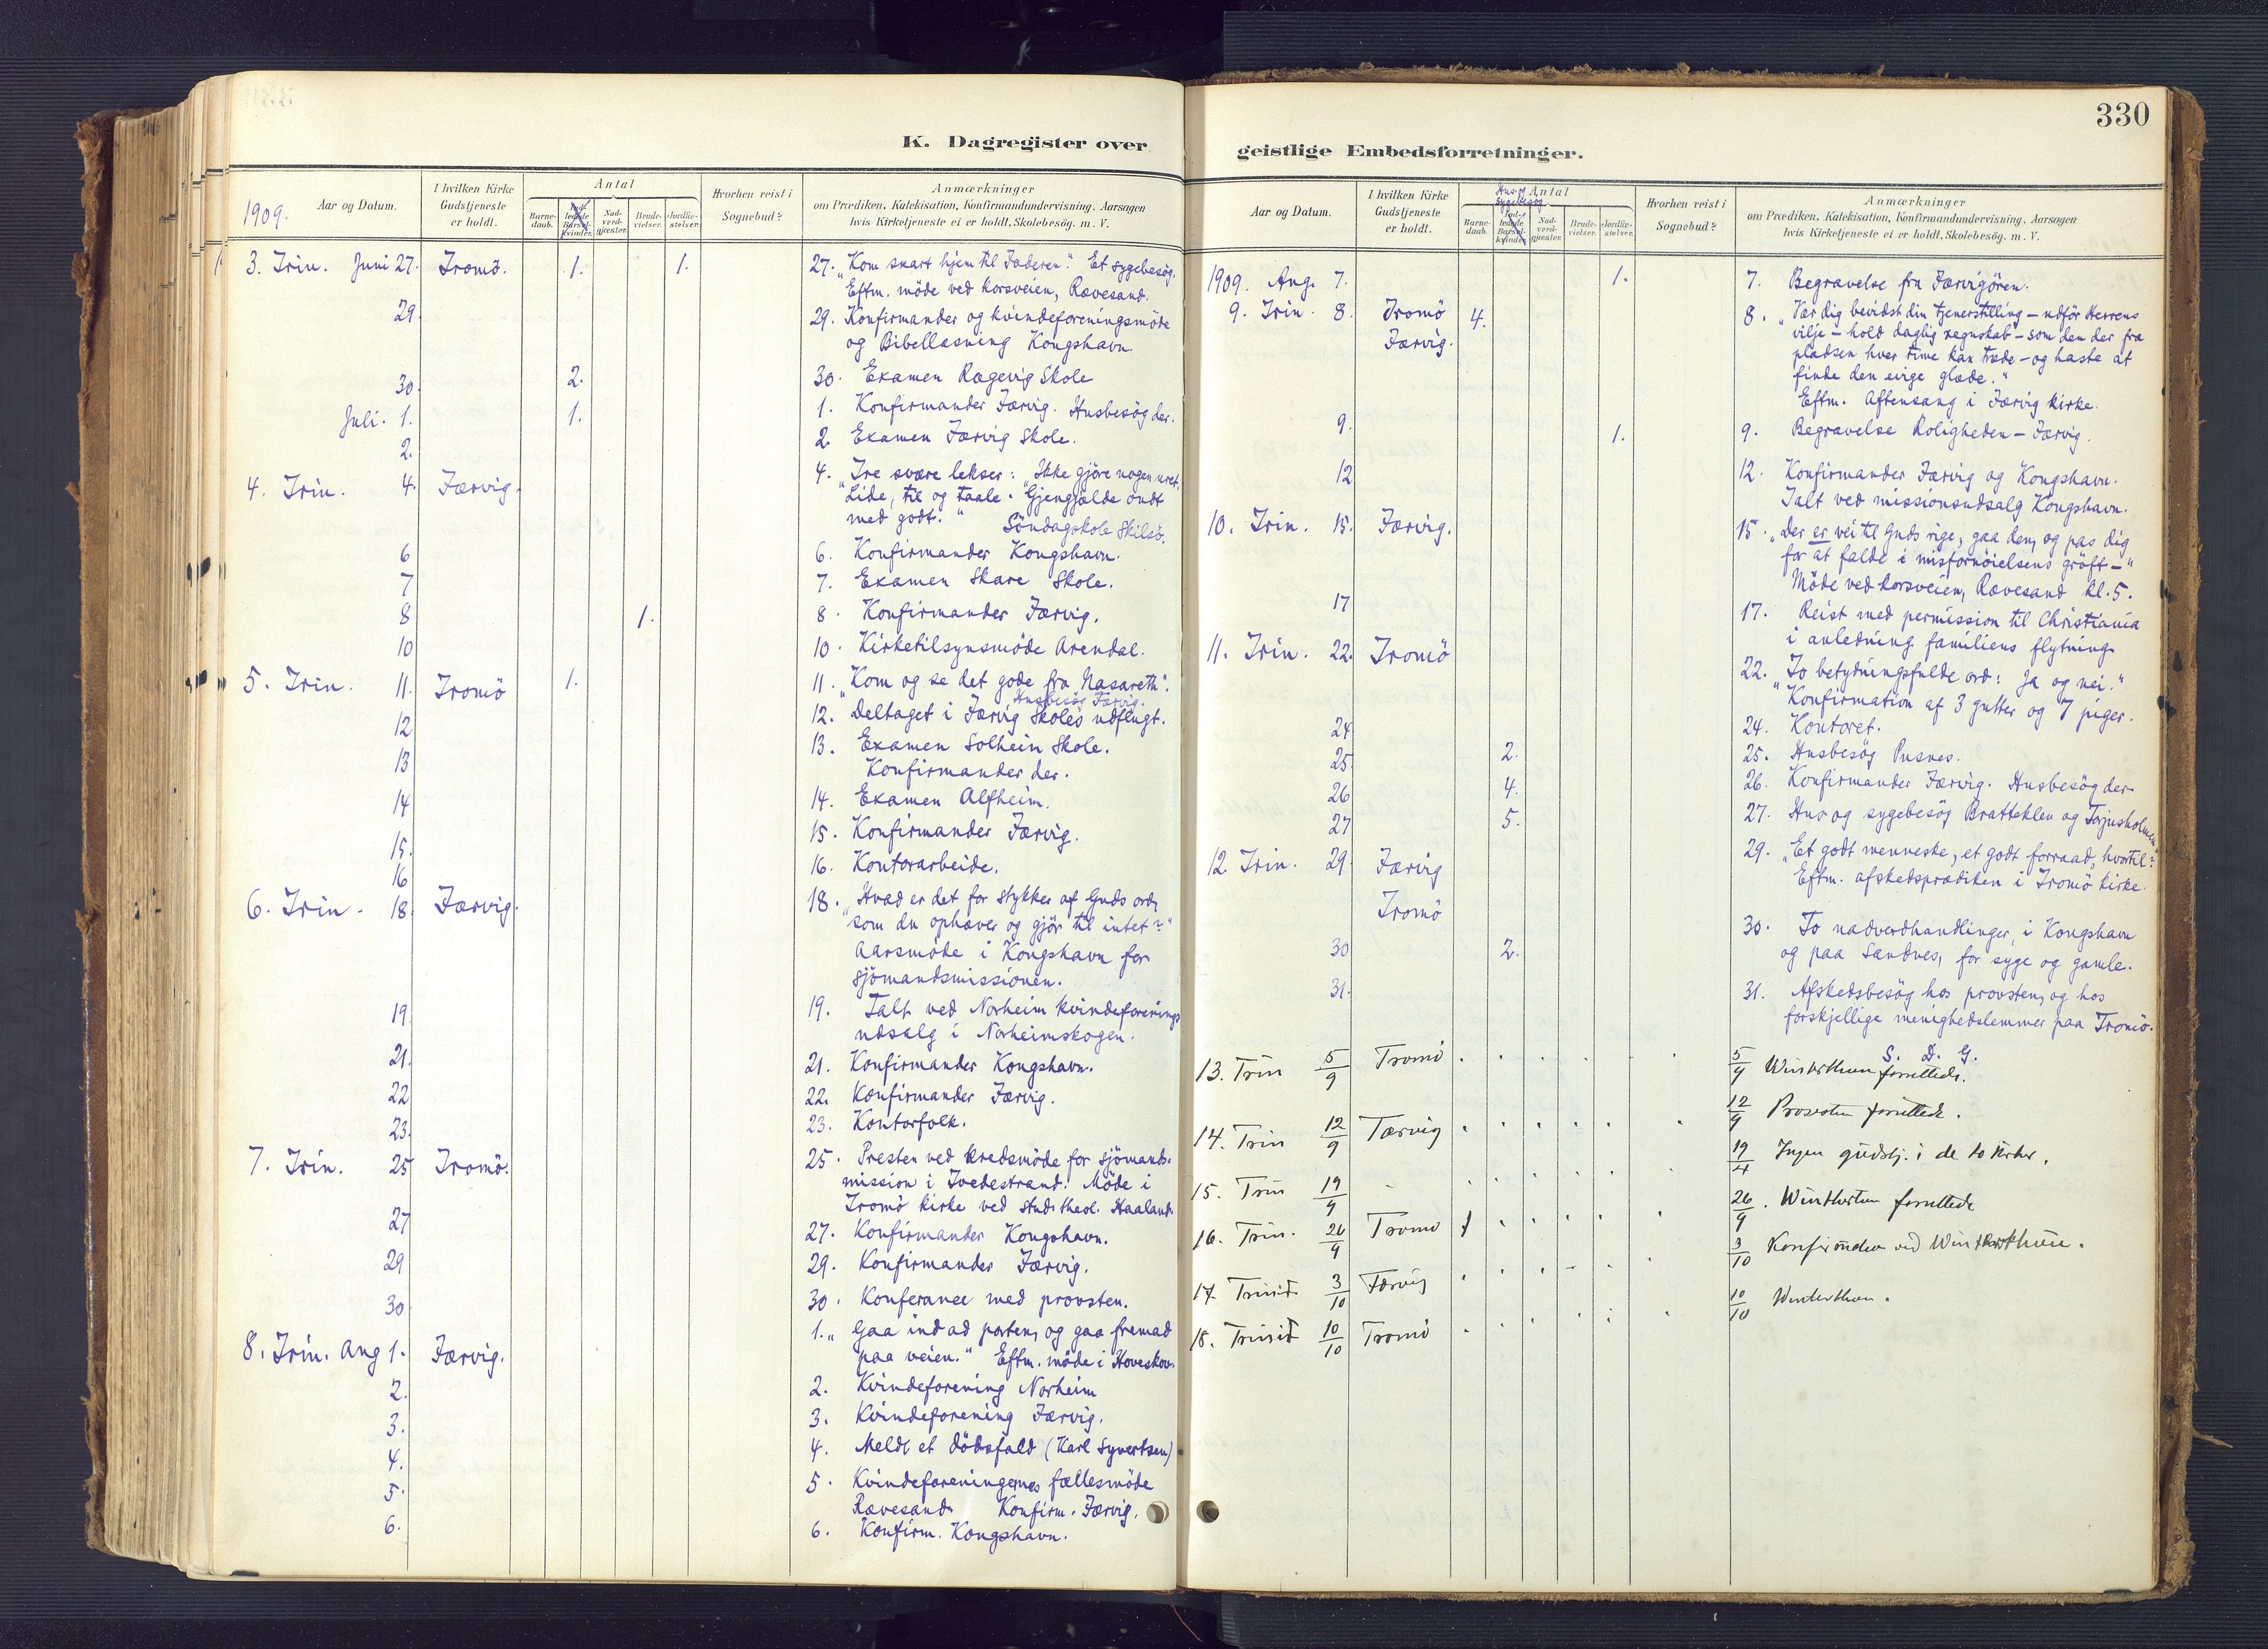 330
K. Dagregister over
1909.
Aar og Datum.
I hvilken Kirke
Gudstjeneste
er holdt.
Antal
Barne-
daab.
Ind-
ledede
Barsel-
kvinder.
Nad-
verd-
gjæster.
Brude-
vielser.
Jordfæ-
stelser.
Hvorhen reist i
Sognebud?
Anmærkninger
om Prædiken, Katekisation, Konfirmandundervisning. Aarsagen
hvis Kirketjeneste ei er holdt, Skolebesøg. m. V.
3. Trin. Juni 27. Tromö. 1. 1. 27. „Kom snart hjem til Faderen." Et sygebesög.
Eftm. möde ved korsveien, Rævesand.
29. 29. Konfirmander og kvindeforeningsmöde
og Bibellæsning Kongshavn.
30. 2. 30. Examen Rægevig Skole
Juli. 1. 1. 1. Konfirmander Færvig. Husbesög der.
2. 2. Examen Færvig Skole.
4. Trin. 4. Færvig. 4. „Tre svære lekser: Ikke gjöre nogen uret.
Lide, til og taale. Gjengjælde ondt
med godt." Söndagskole Skilsö.
6 6. Konfirmander Kongshavn.
7 7. Examen Skare Skole.
8 1. 8. Konfirmander Færvig.
10 10. Kirketilsynsmöde Arendal.
5. Trin. 11. Tromö 1. 11. „Kom og se det gode fra Nasareth".
Husbesög Færvig.
12 12. Deltaget i Færvig Skoles udflugt.
13 13. Examen Solhein Skole.
Konfirmander der.
14 14. Examen Alfheim.
15. 15. Konfirmander Færvig.
16 16. Kontorarbeide.
6. Trin. 18. Færvig. 18. „Hvad er det for stykker af Guds ord,
som du ophæver og gjör til intet?"
Aarsmöde i Kongshavn for
sjömandsmissionen.
19. 19. Talt ved Norheim kvindeforenings
udsalg i Norheimskogen.
21. 21. Konfirmander Kongshavn.
22 22. Konfirmander Færvig.
23. 23. Kontorfolk.
7. Trin. 25 Tromö. 25. Presten ved kredsmöde for sjömands-
mission i Tvedestrand. Möde i
Tromö kirke ved stud. theol. Haaland.
27 27. Konfirmander Kongshavn.
29 29. Konfirmander Færvig.
30 30. Konferance med provsten.
8. Trin. Aug 1. Færvig. 1. „Gaa ind ad porten, og gaa fremad
paa veien." Eftm. möde i Hoveskov.
2. 2. Kvindeforening Norheim
3. 3. Kvindeforening Færvig.
4. 4. Meldt et dödsfald (Karl Syvertsen)
5. 5. Kvindeforeningernes fællesmöde
Rævesand. Konfirm. Færvig.
6. 6. Konfirm. Kongshavn.
geistlige Embedsforretninger.
Aar og Datum.
I hvilken Kirke
Gudstjeneste
er holdt.
Hus og
sygebesög
Antal
Barne-
daab.
Ind-
ledede
Barsel-
kvinder.
Nad-
verd-
gjæster.
Brude-
vielser.
Jordfæ-
stelser.
Hvorhen reist i
Sognebud?
Anmærkninger
om Prædiken, Katekisation, Konfirmandundervisning, Aarsagen
hvis Kirketjeneste ei er holdt, Skolebesøg. m. V.
1909. Aug. 7. 1. 7. Begravelse fra Færvigören.
9. Trin. 8. Tromö 4. 8. „Vær dig bevidst din tjenerstilling – udför Herrens
Færvig. vilje – hold daglig regnskab – som den der fra
pladsen hver time kan træde – og haste at
finde den evige glæde."
Eftm. Aftensang i Færvig kirke.
9. 1. 9. Begravelse Roligheden – Færvig.
12 12. Konfirmander Færvig og Kongshavn.
Talt ved missionsudsalg Kongshavn.
10. Trin. 15. Færvig. 15. „Der er vei til Guds rige, gaa den, og pas dig
for at falde i misfornöielsens gröft –"
Möde ved korsveien, Rævesand kl. 5.
17 17. Reist med permission til Christiania
i anledning familiens flytning.
11. Trin. 22. Tromö 22. „To betydningsfulde ord: Ja og nei."
Konfirmation af 3 gutter og 7 piger.
24 24. Kontoret.
25 2. 25. Husbesög Pusnes.
26 4. 26. Konfirmander Færvig. Husbesög der.
27 5. 27. Hus og sygebesög Bratteklev og Torjusholmen
12 Trin. 29. Færvig 29. „Et godt menneske, et godt forraad, hvortil?"
Tromö Eftm. afskedsprædiken i Tromö kirke.
30 2. 30. To nadverdhandlinger, i Kongshavn
og paa Sandnes, for syge og gamle.
31. 31. Afskedsbesög hos provsten, og hos
forskjellige menighedslemmer paa Tromö.
S. D. G.
13. Trin 5/9 Tromö 5/9 Winterthun forrettede.
14. Trin 12/9 Færvig 12/9 Provsten forrettede.
15. Trin 19/9 - 19/9 Ingen gudstj. i de to kirker.
16. Trin. 26/9 Tromö 1 26/9. Winterthun forrettede
17. Trinit. 3/10 Færvig 3/10 ved Winterthun.
18. Trinit 10/10 Tromö 10/10 Winterthun.